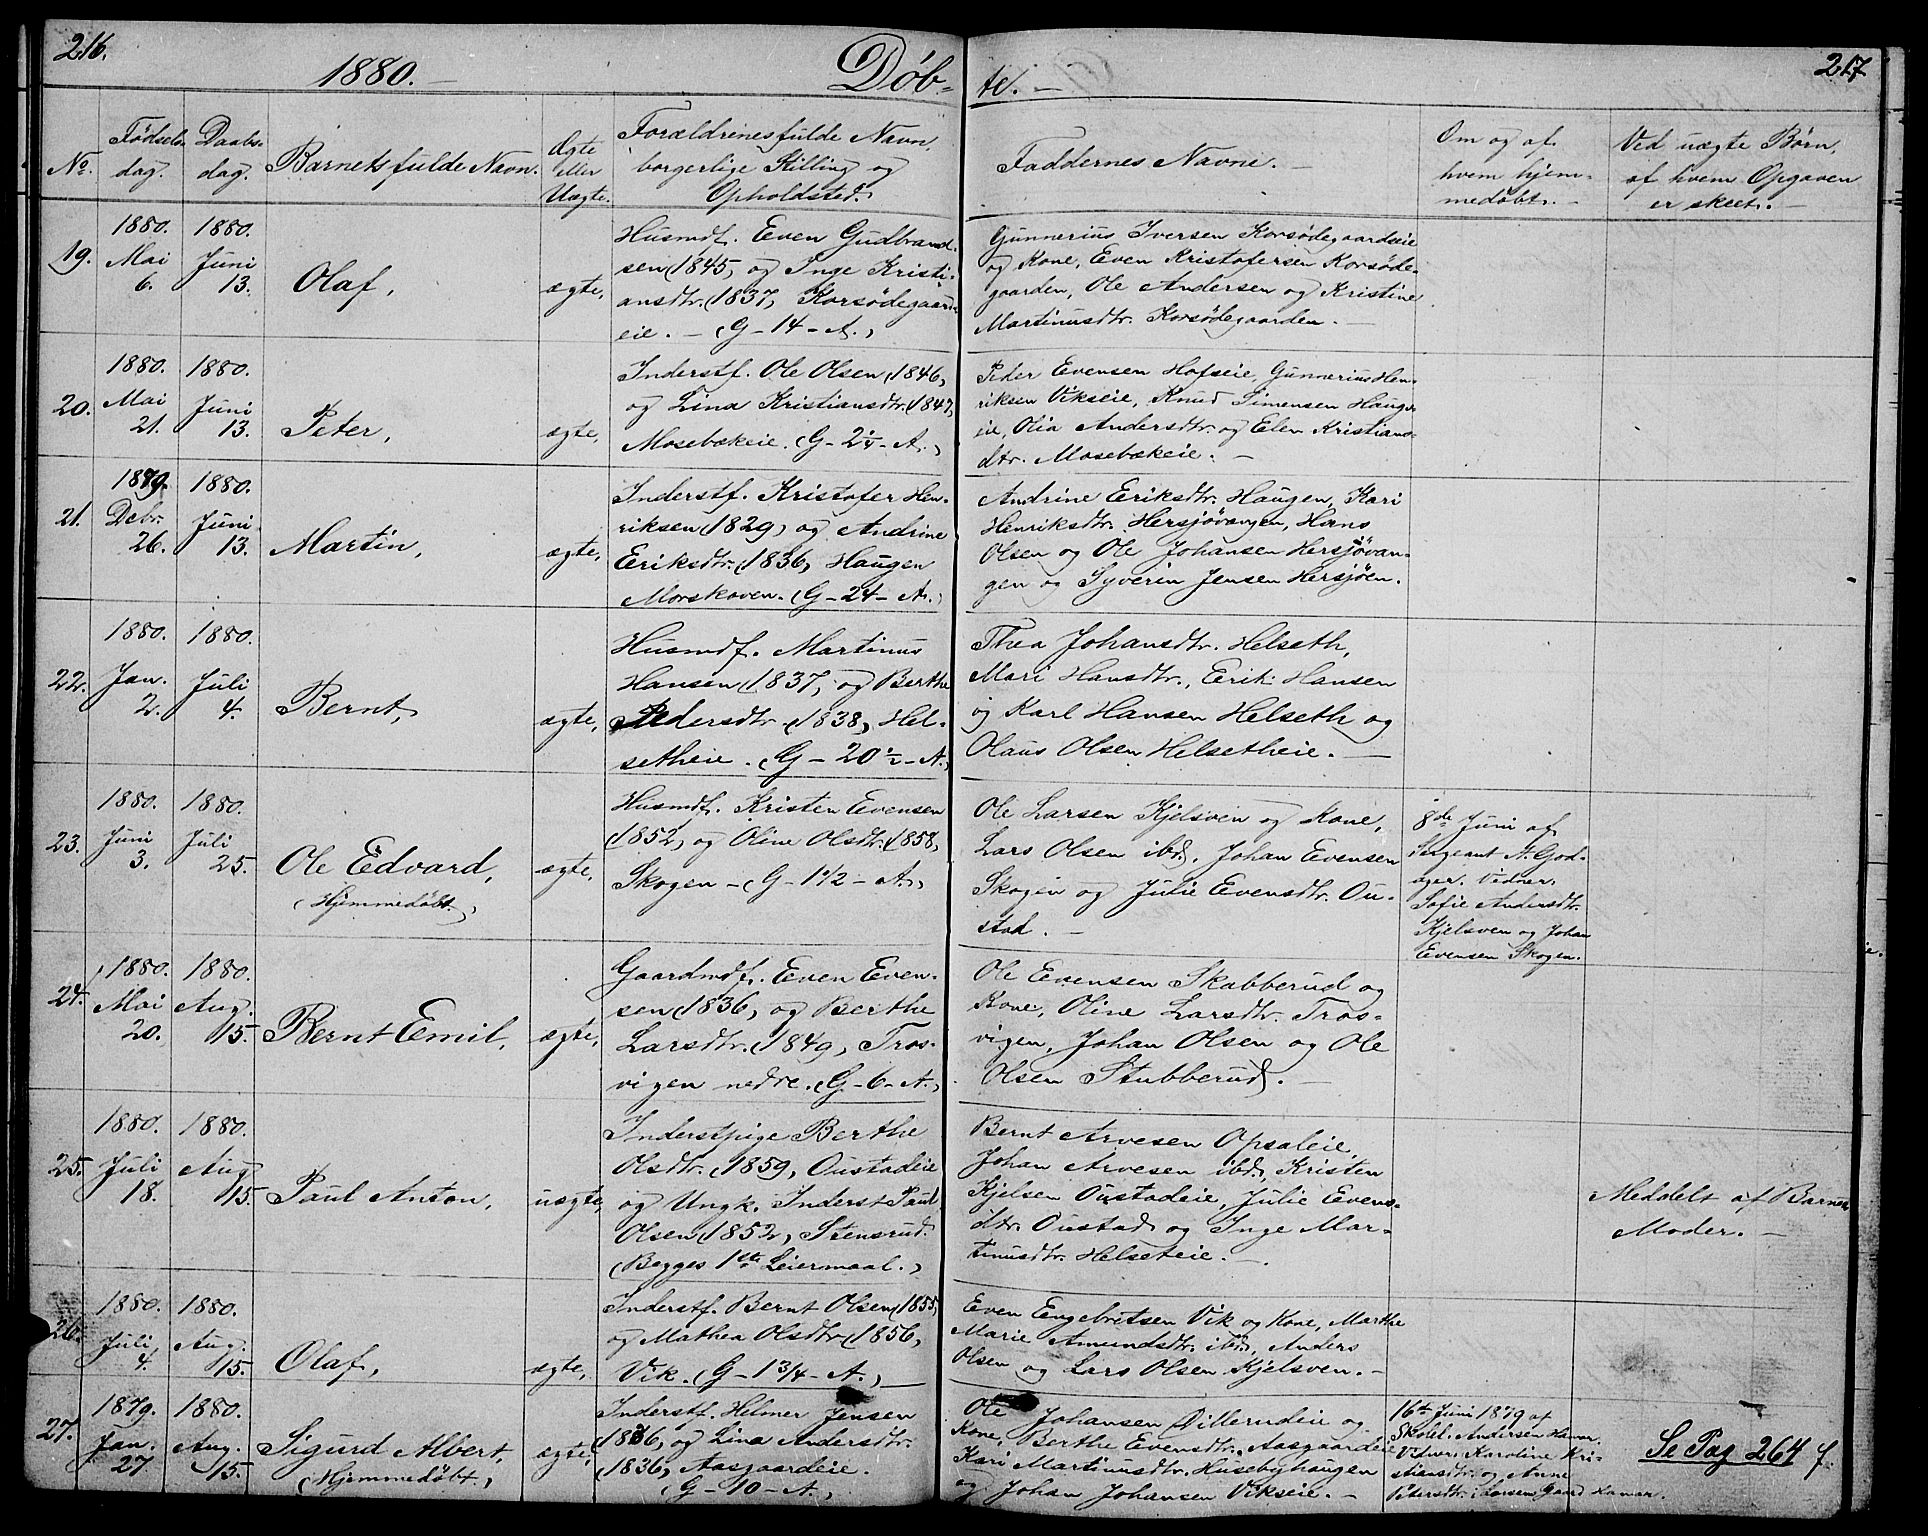 216.
1880. –
Døb-
te. –
217
No.
Fødsels-
dag.
Daabs-
dag.
Barnets fulde Navn.
Ægte
eller
Uægte.
Forældrenes fulde Navn,
borgerlige Stilling og
Opholdsted.
Faddernes Navne. –
Om og af
hvem hjem-
medøbt. –
Ved uægte Børn,
af hvem Opgaven
er skeet. –
19.
1880.
Mai
6.
1880.
Juni
13.
Olaf,
ægte,
Husmdf. Even Gudbrand-
sen (1845) og Inge Kristi-
ansdtr. (1837) Korsødegaard-
eie. – (G – 14 – A.)
Gunnerius Iversen Korsødegaardseie
og Kone, Even Kristofersen Korsøde-
gaarden, Ole Andersen og Kristine
Martinusdtr. Korsødegaarden. –
20.
1880.
Mai
21.
1880.
Juni
13.
Peter,
ægte,
Inderstf. Ole Olsen (1846)
og Lina Kristiansdtr. (1847)
Mosebækeie. (G – 2¼ – A.)
Peder Evensen Hofseie, Gunnerius Hen-
riksen Vikseie, Knud Simensen Haugs-
eie, Olia Andersdtr. og Elen Kristians-
dtr. Mosebækeie. –
21.
1879.
Debr.
26.
1880.
Juni
13.
Martin,
ægte,
Inderstf. Kristofer Hen-
riksen (1829) og Andrine
Eriksdtr. (1836) Haugen
Morskoven. (G – 24 – A.)
Andrine Eriksdtr. Haugen, Kari
Henriksdtr. Hersjøvangen, Hans
Olsen og Ole Johansen Hersjøvan-
gen og Syverin Jensen Hersjøen.
22.
1880.
Jan.
2.
1880.
Juli
4.
Bernt,
ægte,
Husmdf. Martinus
Hansen (1837) og Berthe
Pedersdtr. (1838) Hel-
setheie. (G – 20½ – A.)
Thea Johansdtr. Helseth,
Mari Hansdtr., Erik Hansen
og Karl Hansen Helseth og
Olaus Olsen Helsetheie. –
23.
1880.
Juni
3.
1880.
Juli
25.
Ole Edvard,
(Hjemmedøbt.)
ægte,
Husmdf. Kristen Evensen
(1852) og Oline Olsdtr. (1858)
Skogen – (G – 1½ – A.)
Ole Larsen Kjelsven og Kone,
Lars Olsen ibd., Johan Evensen
Skogen og Julie Evensdtr. Ou-
stad. –
8de Juni af
Sergeant A. God-
ager. Vidner.
Sofie Andersdtr.
Kjelsven og Johan
Evensen Skogen.
24.
1880.
Mai
20.
1880.
Aug.
15.
Bernt Emil,
ægte,
Gaardmdf. Even Even-
sen (1836) og Berthe
Larsdtr. (1849) Tros-
vigen nedre. (G – 6 – A.)
Ole Evensen Skabberud og
Kone, Oline Larsdtr. Tros-
vigen, Johan Olsen og Ole
Olsen Stubberud. –
25.
1880.
Juli
18.
1880.
Aug
15.
Paul Anton,
uægte,
Inderstpige Berthe
Olsdtr. (1859) Oustadeie
og Ungk. Inderst Paul
Olsen (1852) Stensrud.
(Begges 1ste Leiermaal.)
Bernt Arvesen Opsaleie,
Johan Arvesen ibd., Kristen
Kjelsen Oustadeie, Julie Evens-
dtr. Oustad og Inge Mar-
tinusdtr. Helseteie. –
Meddelt af Barnets
Moder. –
26.
1880.
Juli
4.
1880.
Aug.
15.
Olaf,
ægte,
Inderstf. Bernt Olsen (1855)
og Mathea Olsdtr. (1856)
Vik. (G – 1¾ – A.)
Even Engebretsen Vik og Kone, Marthe
Marie Amundsdtr. ibd., Anders
Olsen og Lars Olsen Kjelsven. –
27.
1879.
Jan.
27.
1880.
Aug.
15.
Sigurd Albert,
(Hjemmedøbt.)
ægte,
Inderstf. Helmer Jensen
(1836) og Lina Andersdtr.
(1836) Aasgaardeie.
(G – 10 – A.)
Ole Johansen Dillerudeie og
Kone, Berthe Evensdtr. Aasgaardeie
Kari Martinusdtr. Husebyhaugen
og Johan Johansen Vikseie. –
16de Juni 1879 af
Skolel. Andersen Hamar.
Vidner: Karoline Kri-
stiansdtr. og Anne
Petersdtr. i Larsen Gaard Hamar.
Se Pag 264 f.